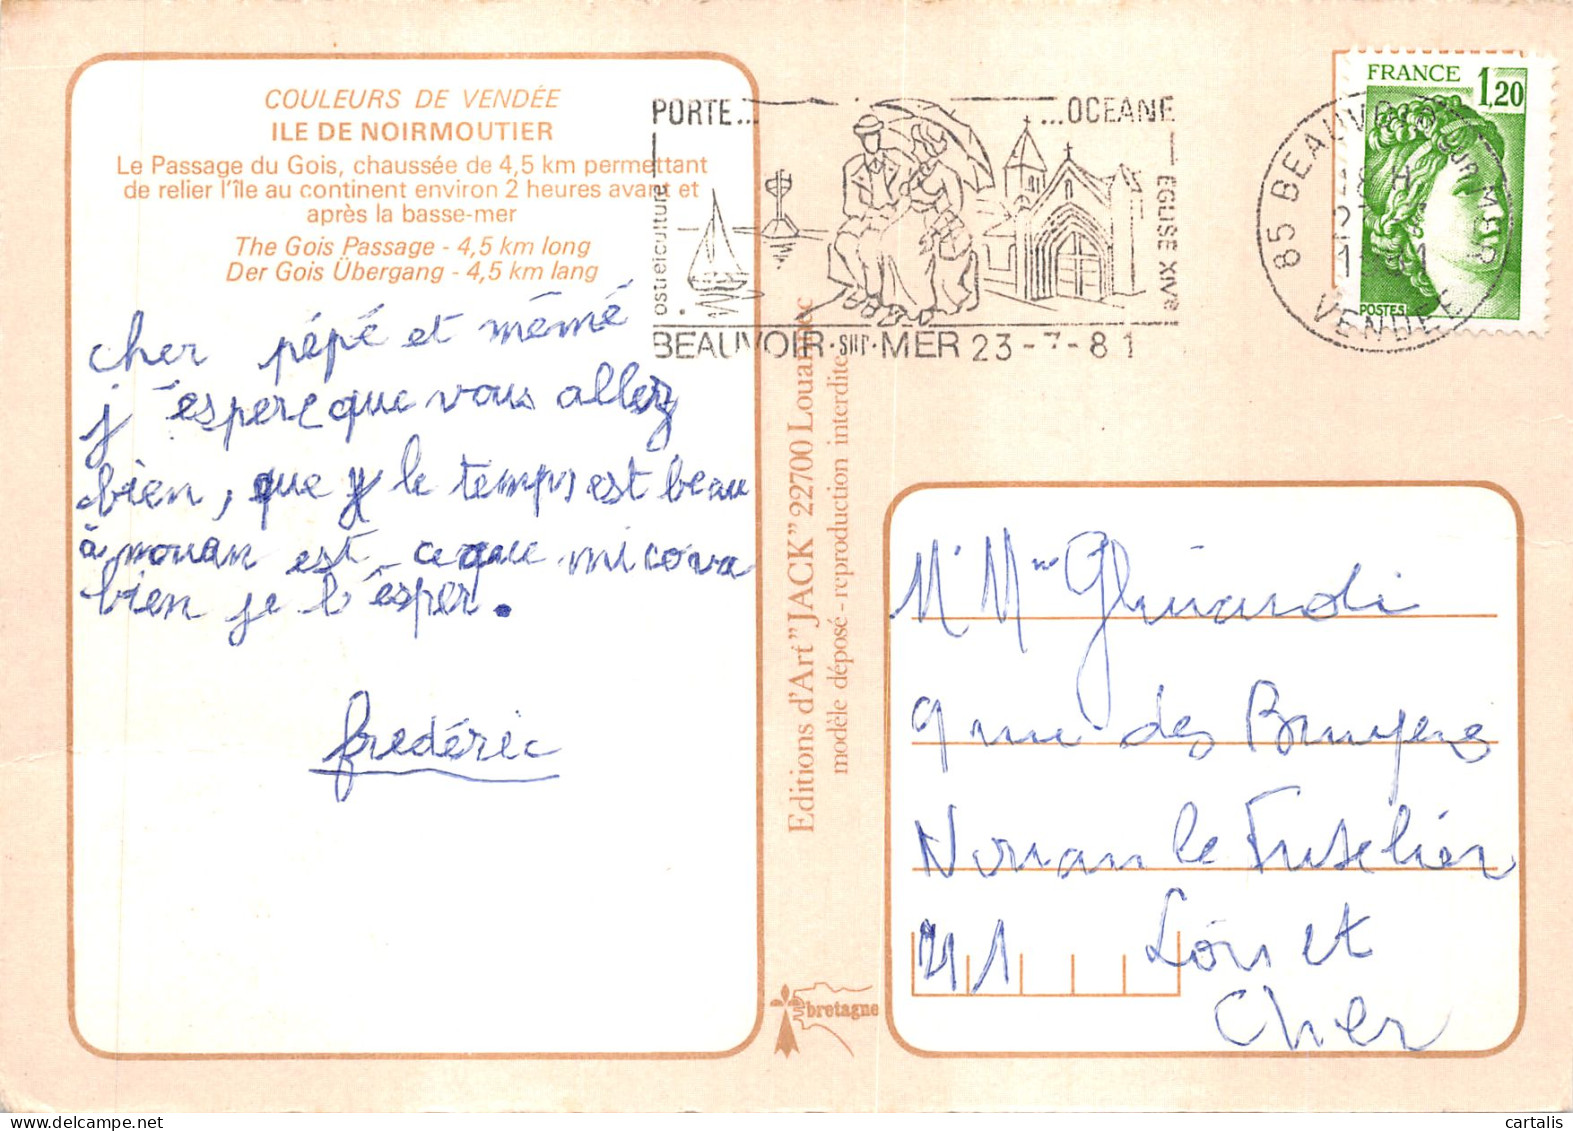 COULEURS DE VENDÉE
ILE DE NOIRMOUTIER
Le Passage du Gois, chaussée de 4,5 km permettant
de relier l'île au continent environ 2 heures avant et
après la basse-mer
The Gois Passage - 4,5 km long
Der Gois Übergang - 4,5 km lang
cher pépé et mémé
j'espere que vous allez
bien, que le temps est beau
à nouan est ceque micova
bien je l'esper.
frédéric
PORTE... ...OCEANE
ostréiculture
EGLISE XIVe
BEAUVOIR·sur·MER 23-7-81
Editions d'Art "JACK" 22700 Louannec
modèle déposé - reproduction interdite
bretagne
FRANCE 1,20
POSTES
85 BEAUVOIR sur MER
VENDEE
Mr Mme Ghirardi
9 rue des Bruyeres
Nouan le Fuselier
41 Loir et
Cher
cartalis